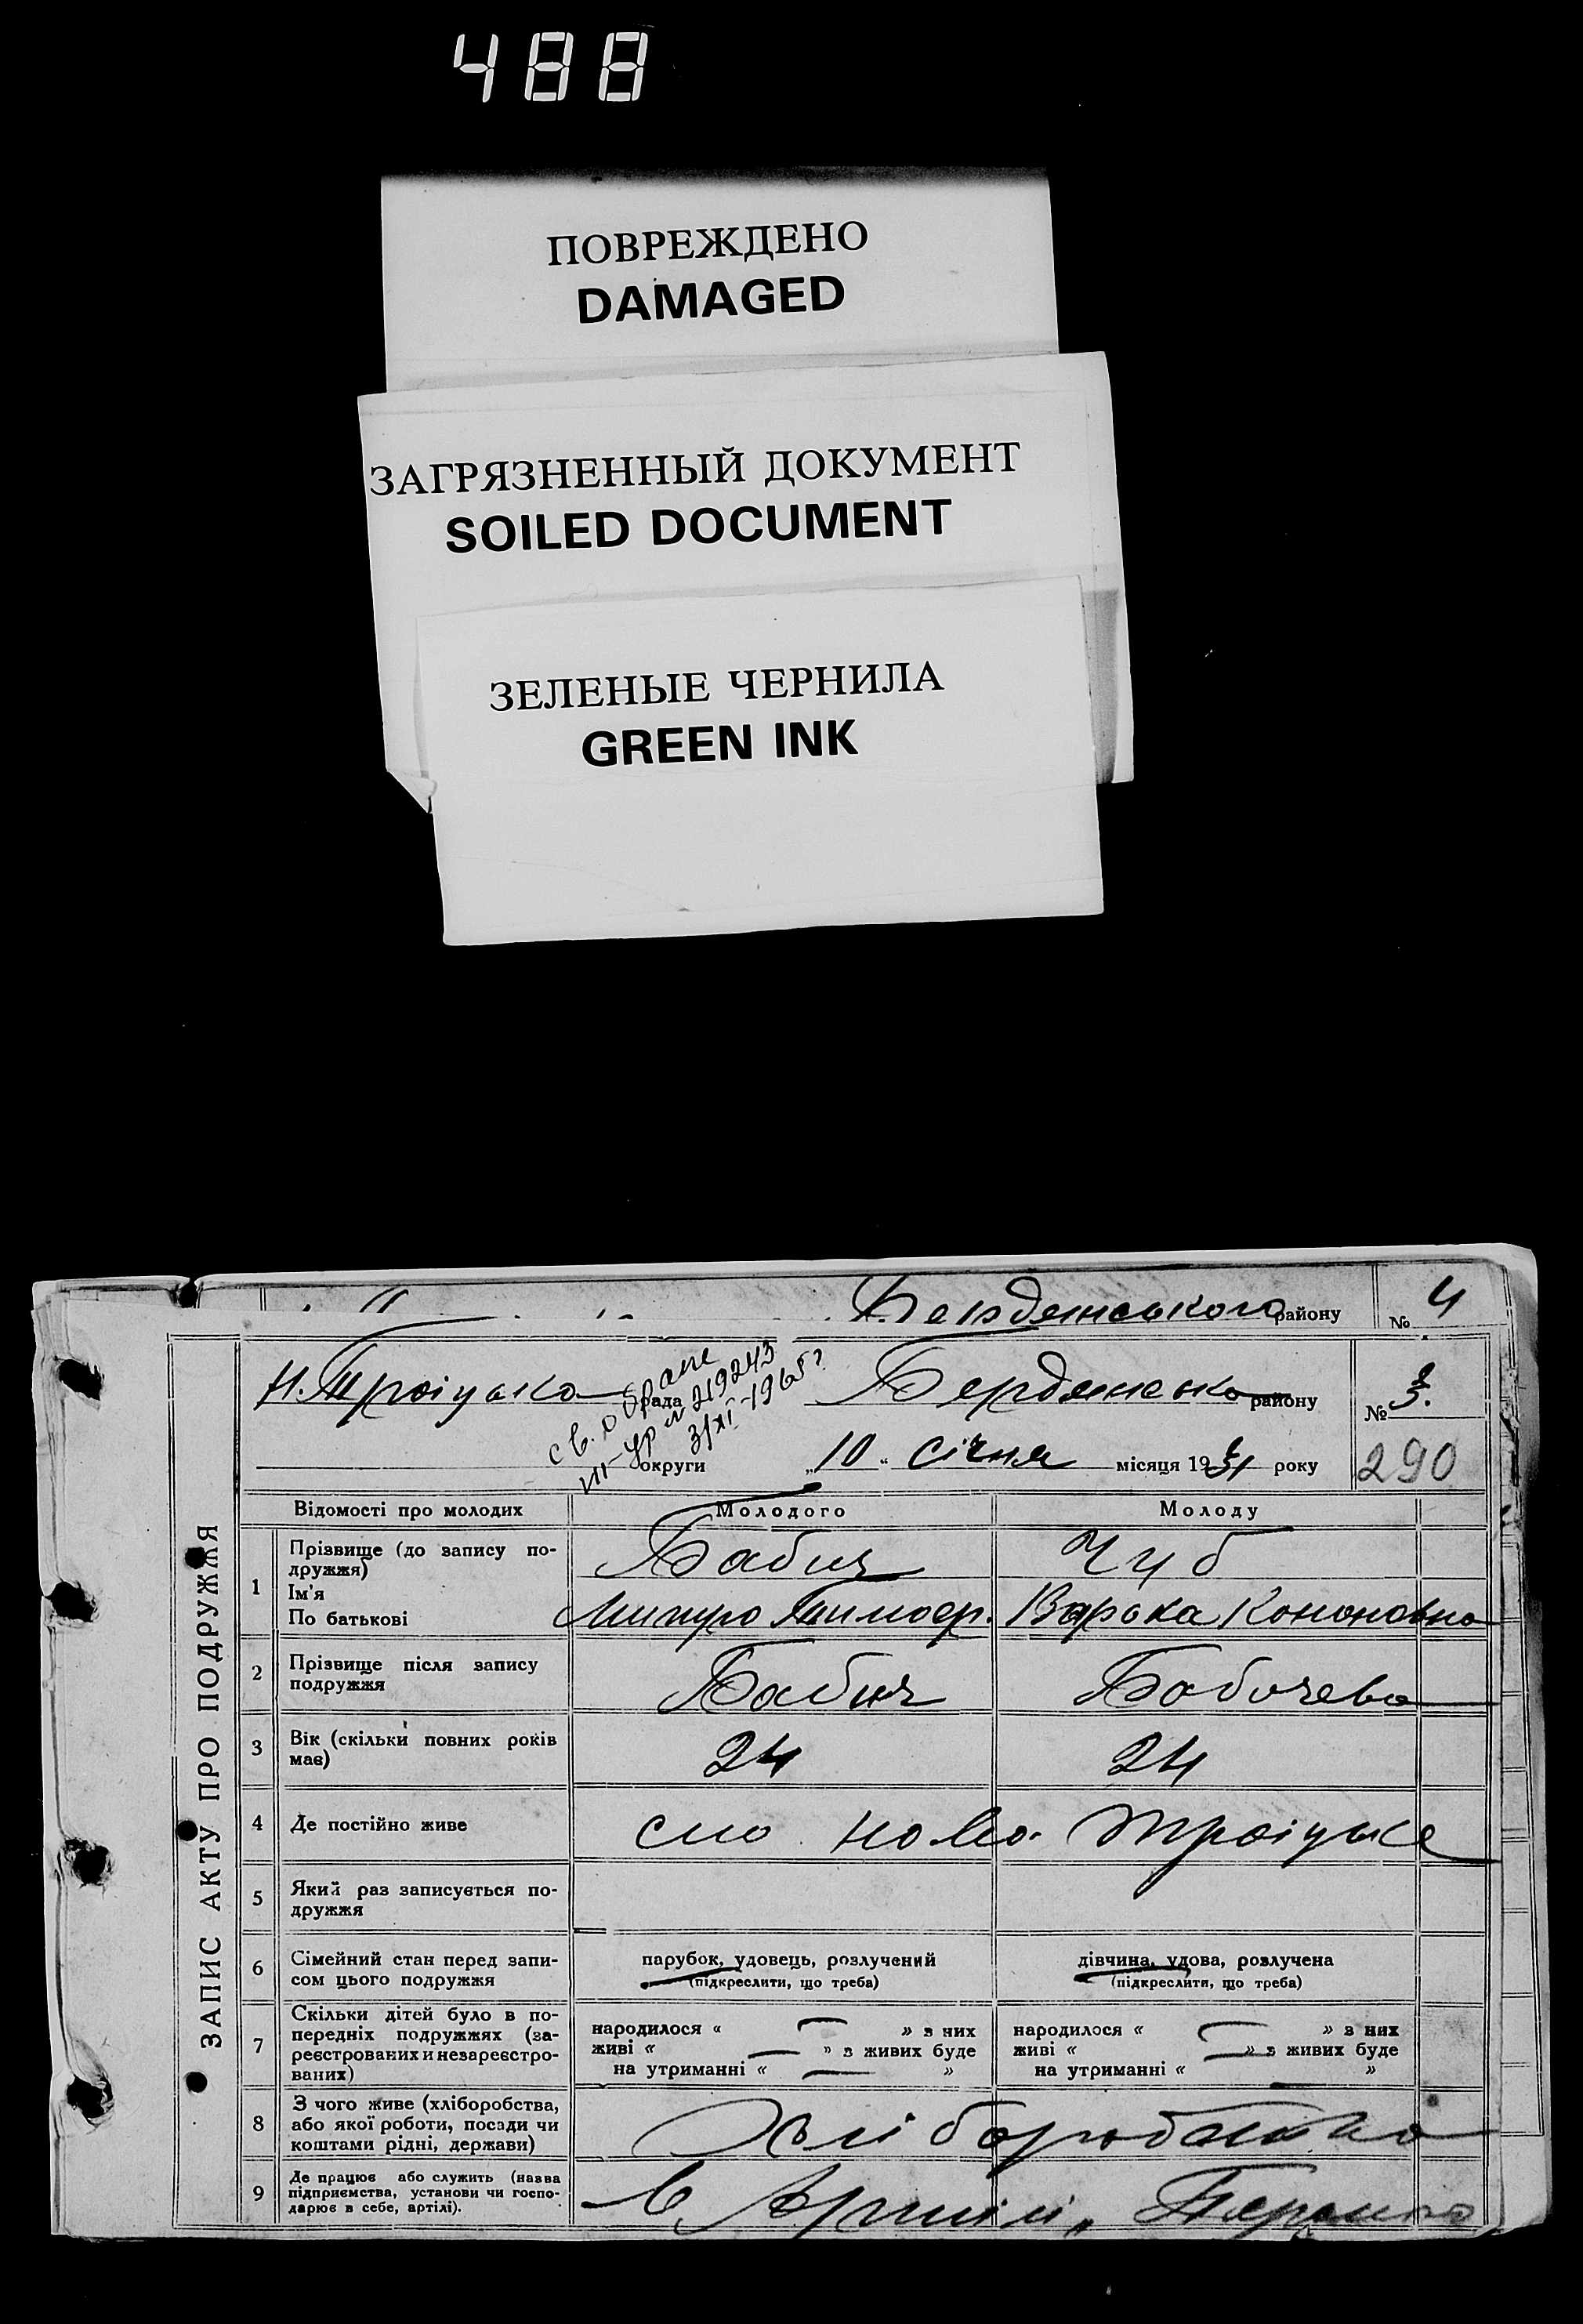 488
ПОВРЕЖДЕНО
DAMAGED
ЗАГРЯЗНЕННЫЙ ДОКУМЕНТ
SOILED DOCUMENT
ЗЕЛЕНЫЕ ЧЕРНИЛА
GREEN INK
Бердянського району № 4
Н. Троіцька рада Бердянсько району № 3.
св. о браке
№ 219243
3/XI-1965 г.
округи „10“ січня місяця 1931 року 290
ЗАПИС АКТУ ПРО ПОДРУЖЖЯ
Відомості про молодих Молодого Молоду
1 Прізвище (до запису по-
дружжя) Бабич Чуб
Ім'я
По батькові Митро Тимоф. Варька Кононовна
2 Прізвище після запису
подружжя Бабич Бабичева
3 Вік (скільки повних років
має) 24 24
4 Де постійно живе село Ново-Троіцьке
5 Який раз записується по-
дружжя
6 Сімейний стан перед запи-
сом цього подружжя
парубок, удовець, розлучений дівчина, удова, розлучена
(підкреслити, що треба) (підкреслити, що треба)
7 Скільки дітей було в по-
передніх подружжях (за-
реєстрованих и незареєстро-
ваних)
народилося « — » з них народилося « — » в них
живі « — » з живих буде живі « — » з живих буде
на утриманні « — » на утриманні « — »
8 З чого живе (хліборобства,
або якої роботи, посади чи
коштами рідні, держави)
Хліборобства
9 Де працює або служить (назва
підприємства, установи чи госпо-
дарює в себе, артілі).
в Артілі „